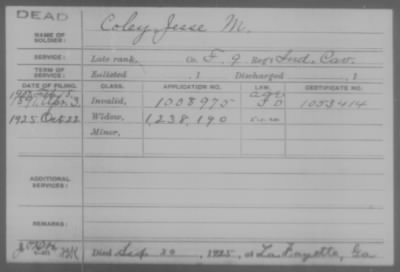 DEAD
NAME OF SOLDIER: Coley, Jesse M.
SERVICE: Late rank, Co. F. 9 Reg't Ind. Cav.
TERM OF SERVICE: Enlisted , 1 Discharged , 1
DATE OF FILING. CLASS. APPLICATION NO. LAW. CERTIFICATE NO.
1891 Apr. 3 Invalid, 1008975 1053414
1925 Oct 22 Widow, 1,238,190
Minor,
ADDITIONAL SERVICES:
REMARKS:
Died Sep 20, 1925, at La Fayette, Ga